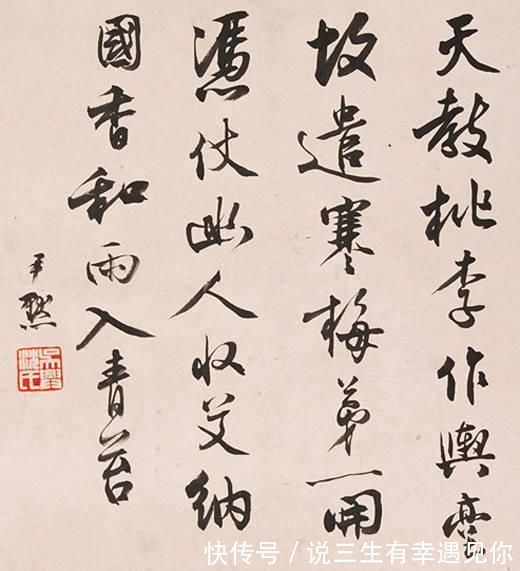 天教桃李作輿臺
故遣寒梅第一開
憑仗幽人收艾納
國香和雨入青苔
尹默
吳興沈氏
快传号 / 说三生有幸遇见你